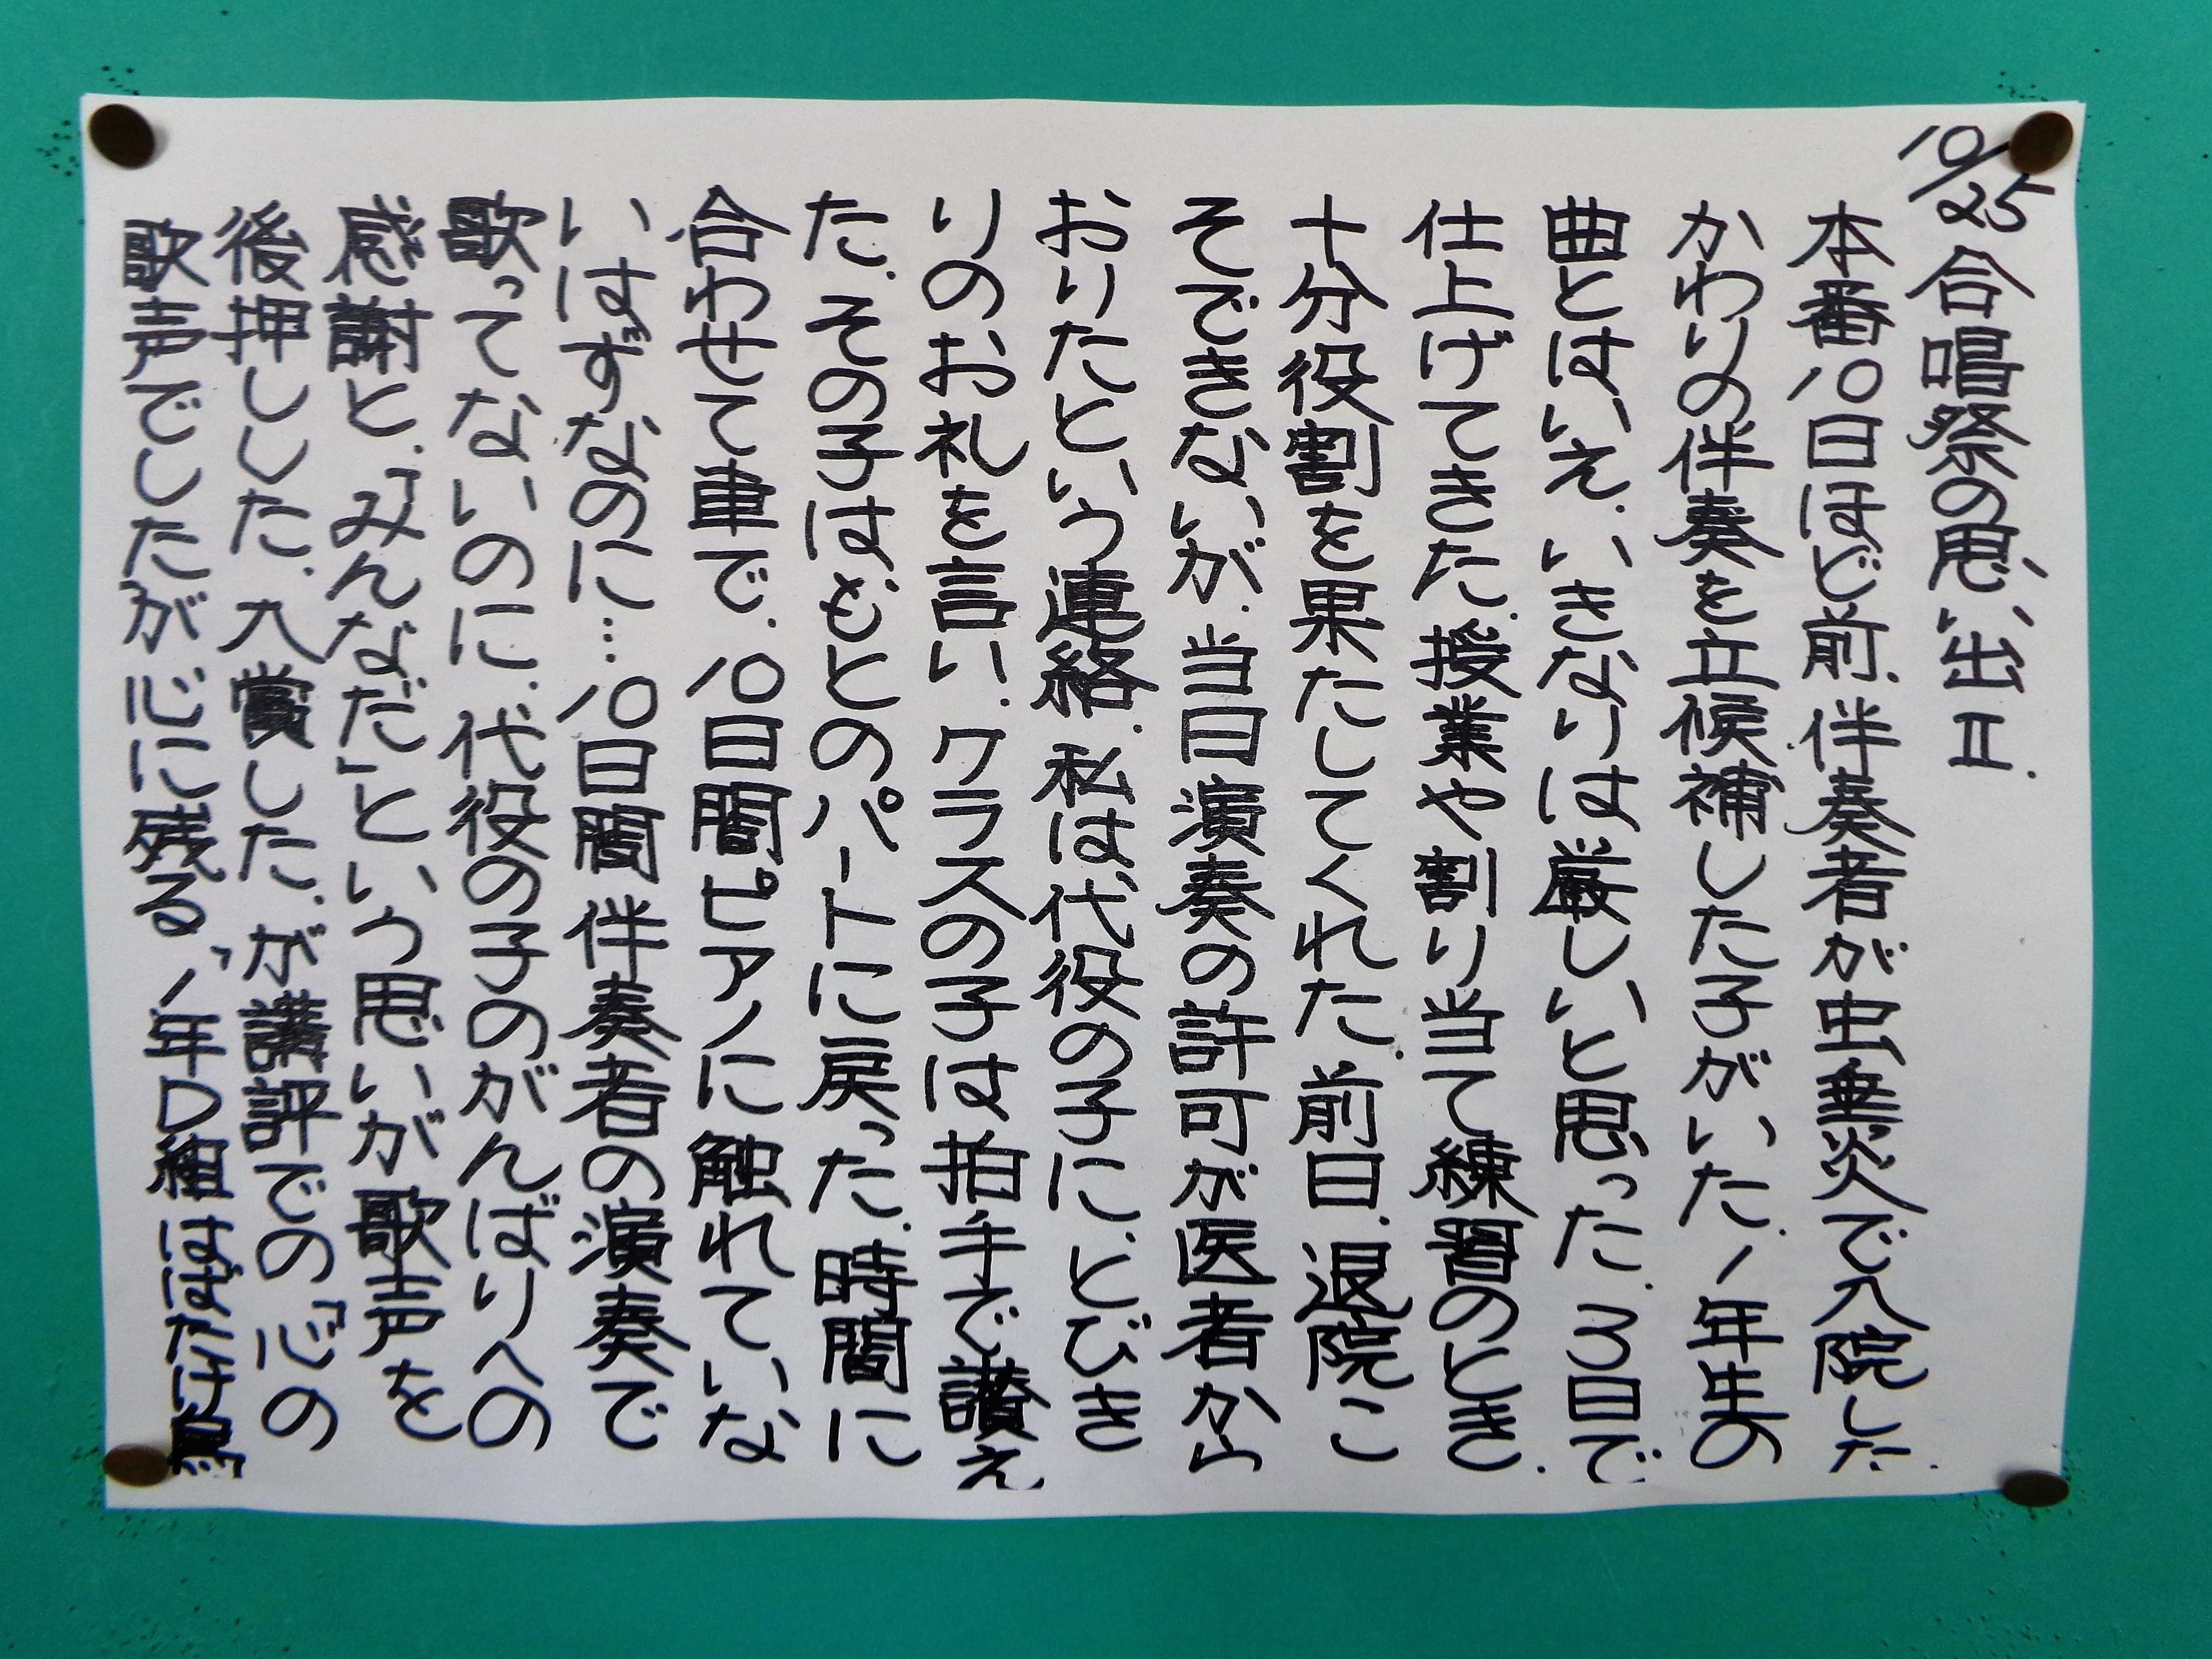 10/25 合唱祭の思い出Ⅱ.
本番10日ほど前、伴奏者が虫垂炎で入院した.
かわりの伴奏を立候補した子がいた.1年生の
曲とはいえ、いきなりは厳しいと思った.3日で
仕上げてきた.授業や割り当て練習のとき.
十分役割を果たしてくれた.前日、退院こ
そできないが、当日演奏の許可が医者から
おりたという連絡.私は代役の子に、とびき
りのお礼を言い、クラスの子は拍手で讃え
た.その子はもとのパートに戻った.時間に
合わせて車で、10日間ピアノに触れていな
いはずなのに…10日間伴奏者の演奏で
歌ってないのに、代役の子のがんばりへの
感謝と、「みんなだ」という思いが歌声を
後押しした.入賞した.が講評での「心の
歌声でしたが心に残る、1年D組は